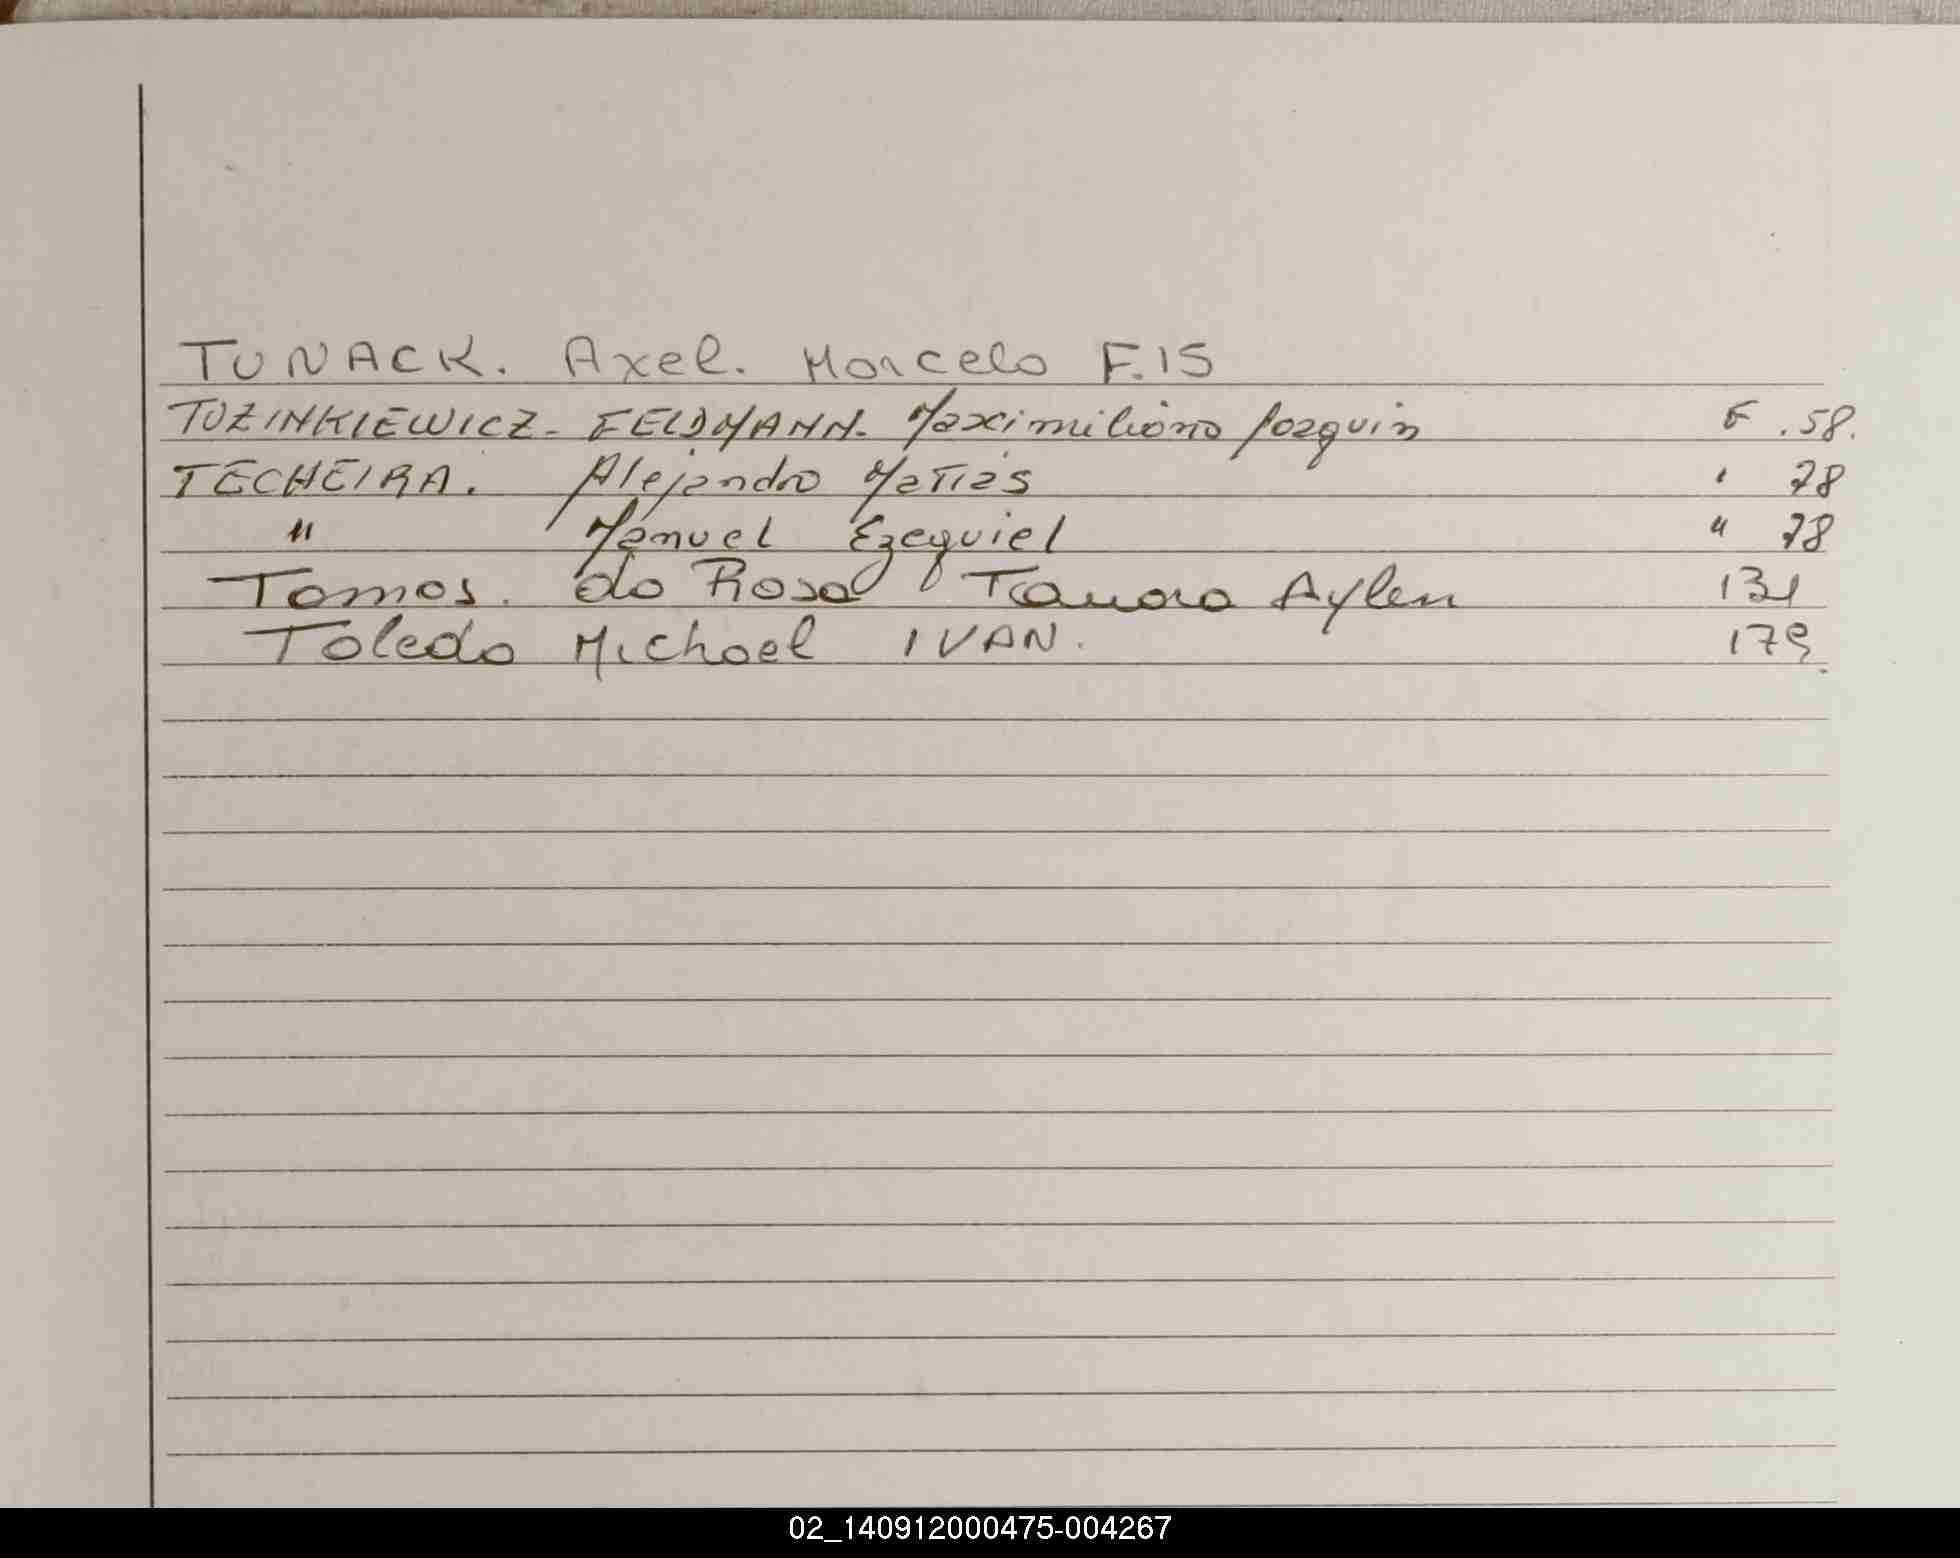 TUNACK. Axel. Marcelo F.15
TUZINKIEWICZ- FELDMANN- Maximiliano Joaquin F .58.
TECHEIRA. Alejandro Matias " 78
" Manuel Ezequiel " 78
Tomas. da Rosa Tamara Aylen 131
Toledo Michael IVAN. 179.
02_140912000475-004267